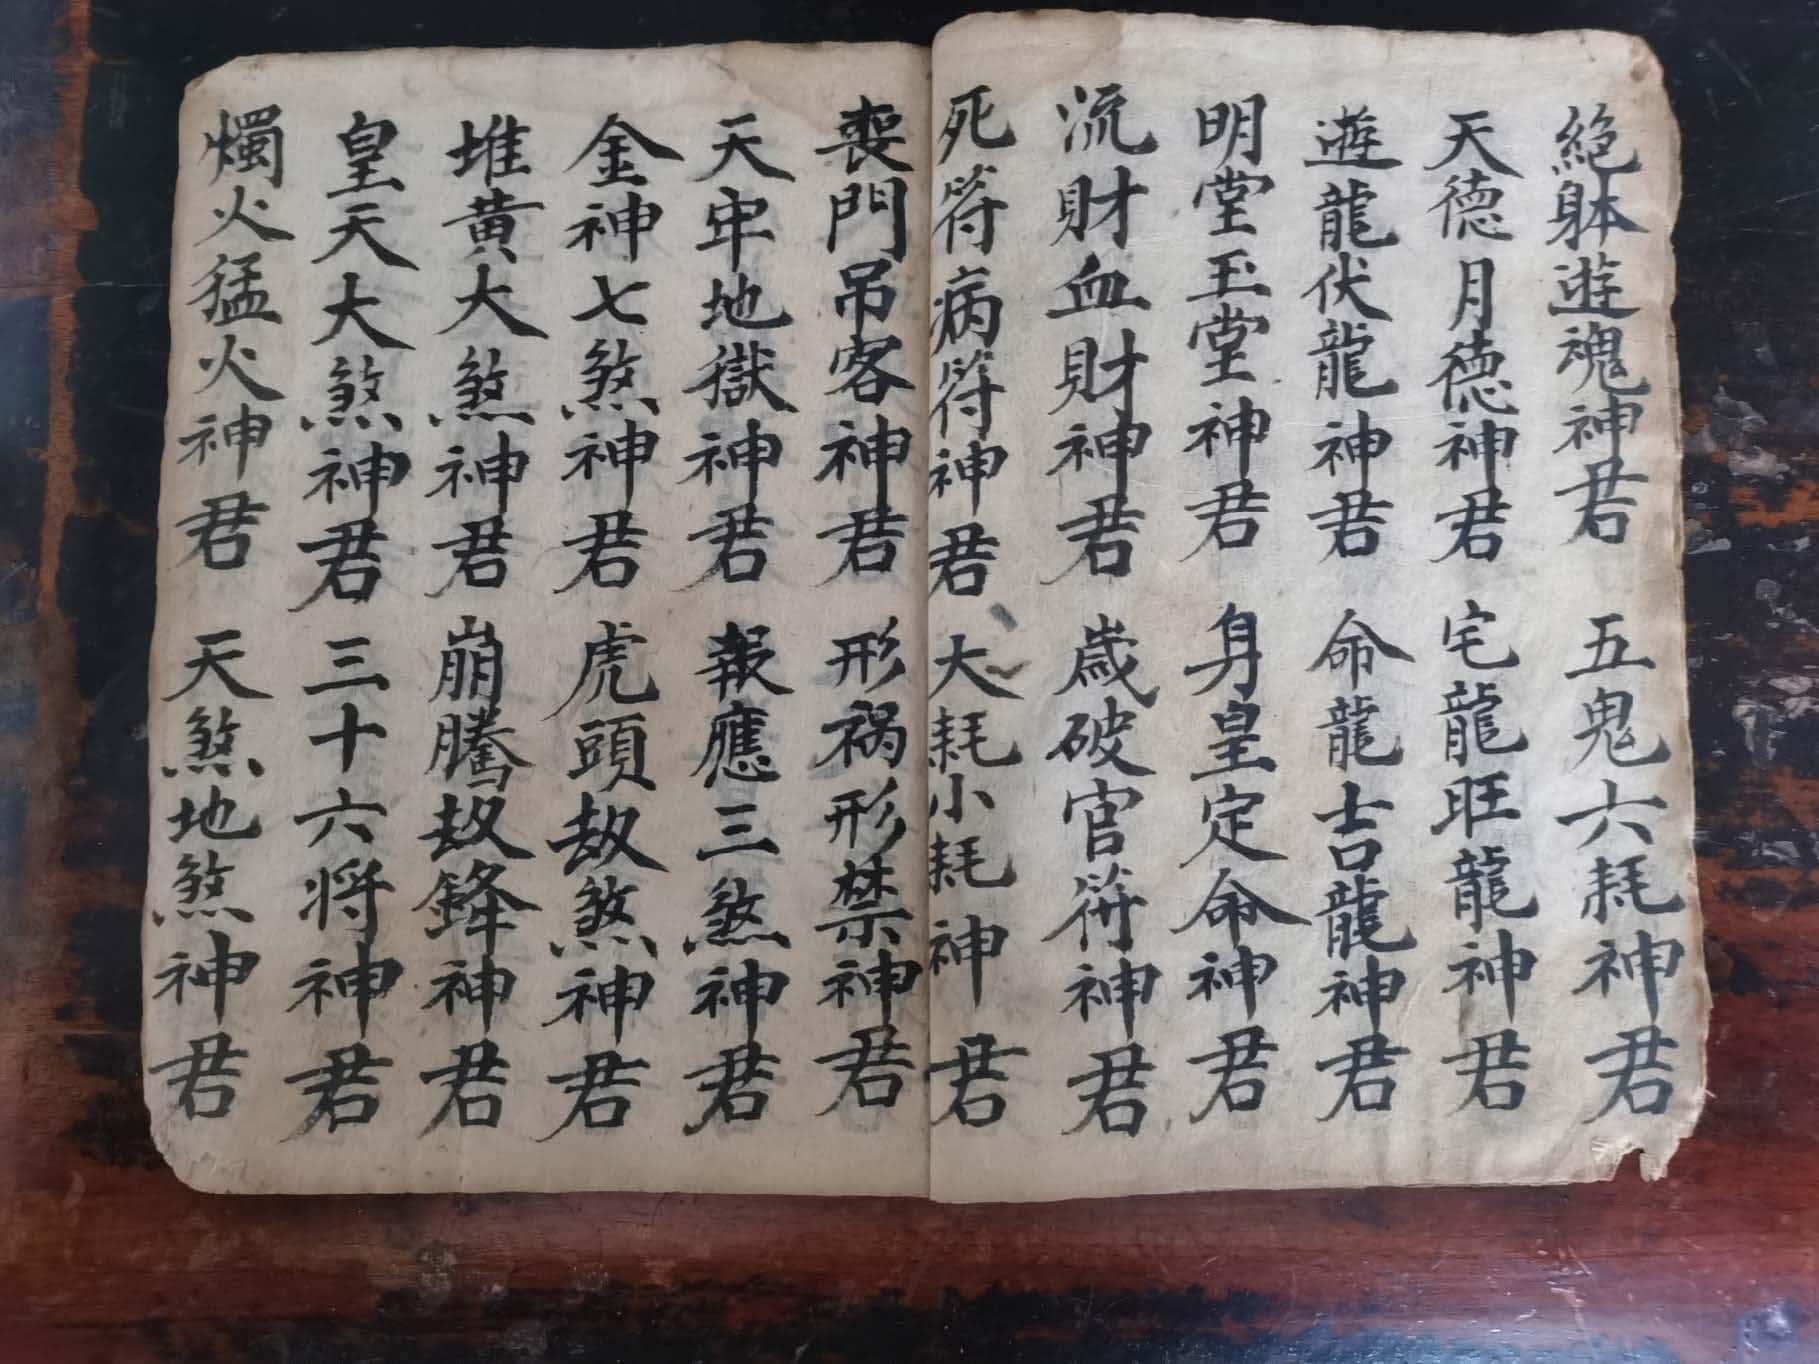 絶躰遊魂神君 五鬼六耗神君
天德月德神君 宅龍旺龍神君
遊龍伏龍神君 命龍吉龍神君
明堂玉堂神君 身皇定命神君
流財血財神君 歳破官符神君
死符病符神君 大耗小耗神君
喪門吊客神君 形禍形禁神君
天牢地獄神君 報應三煞神君
金神七煞神君 虎頭刼煞神君
堆黄大煞神君 崩騰刼鋒神君
皇天大煞神君 三十六将神君
燭火猛火神君 天煞地煞神君